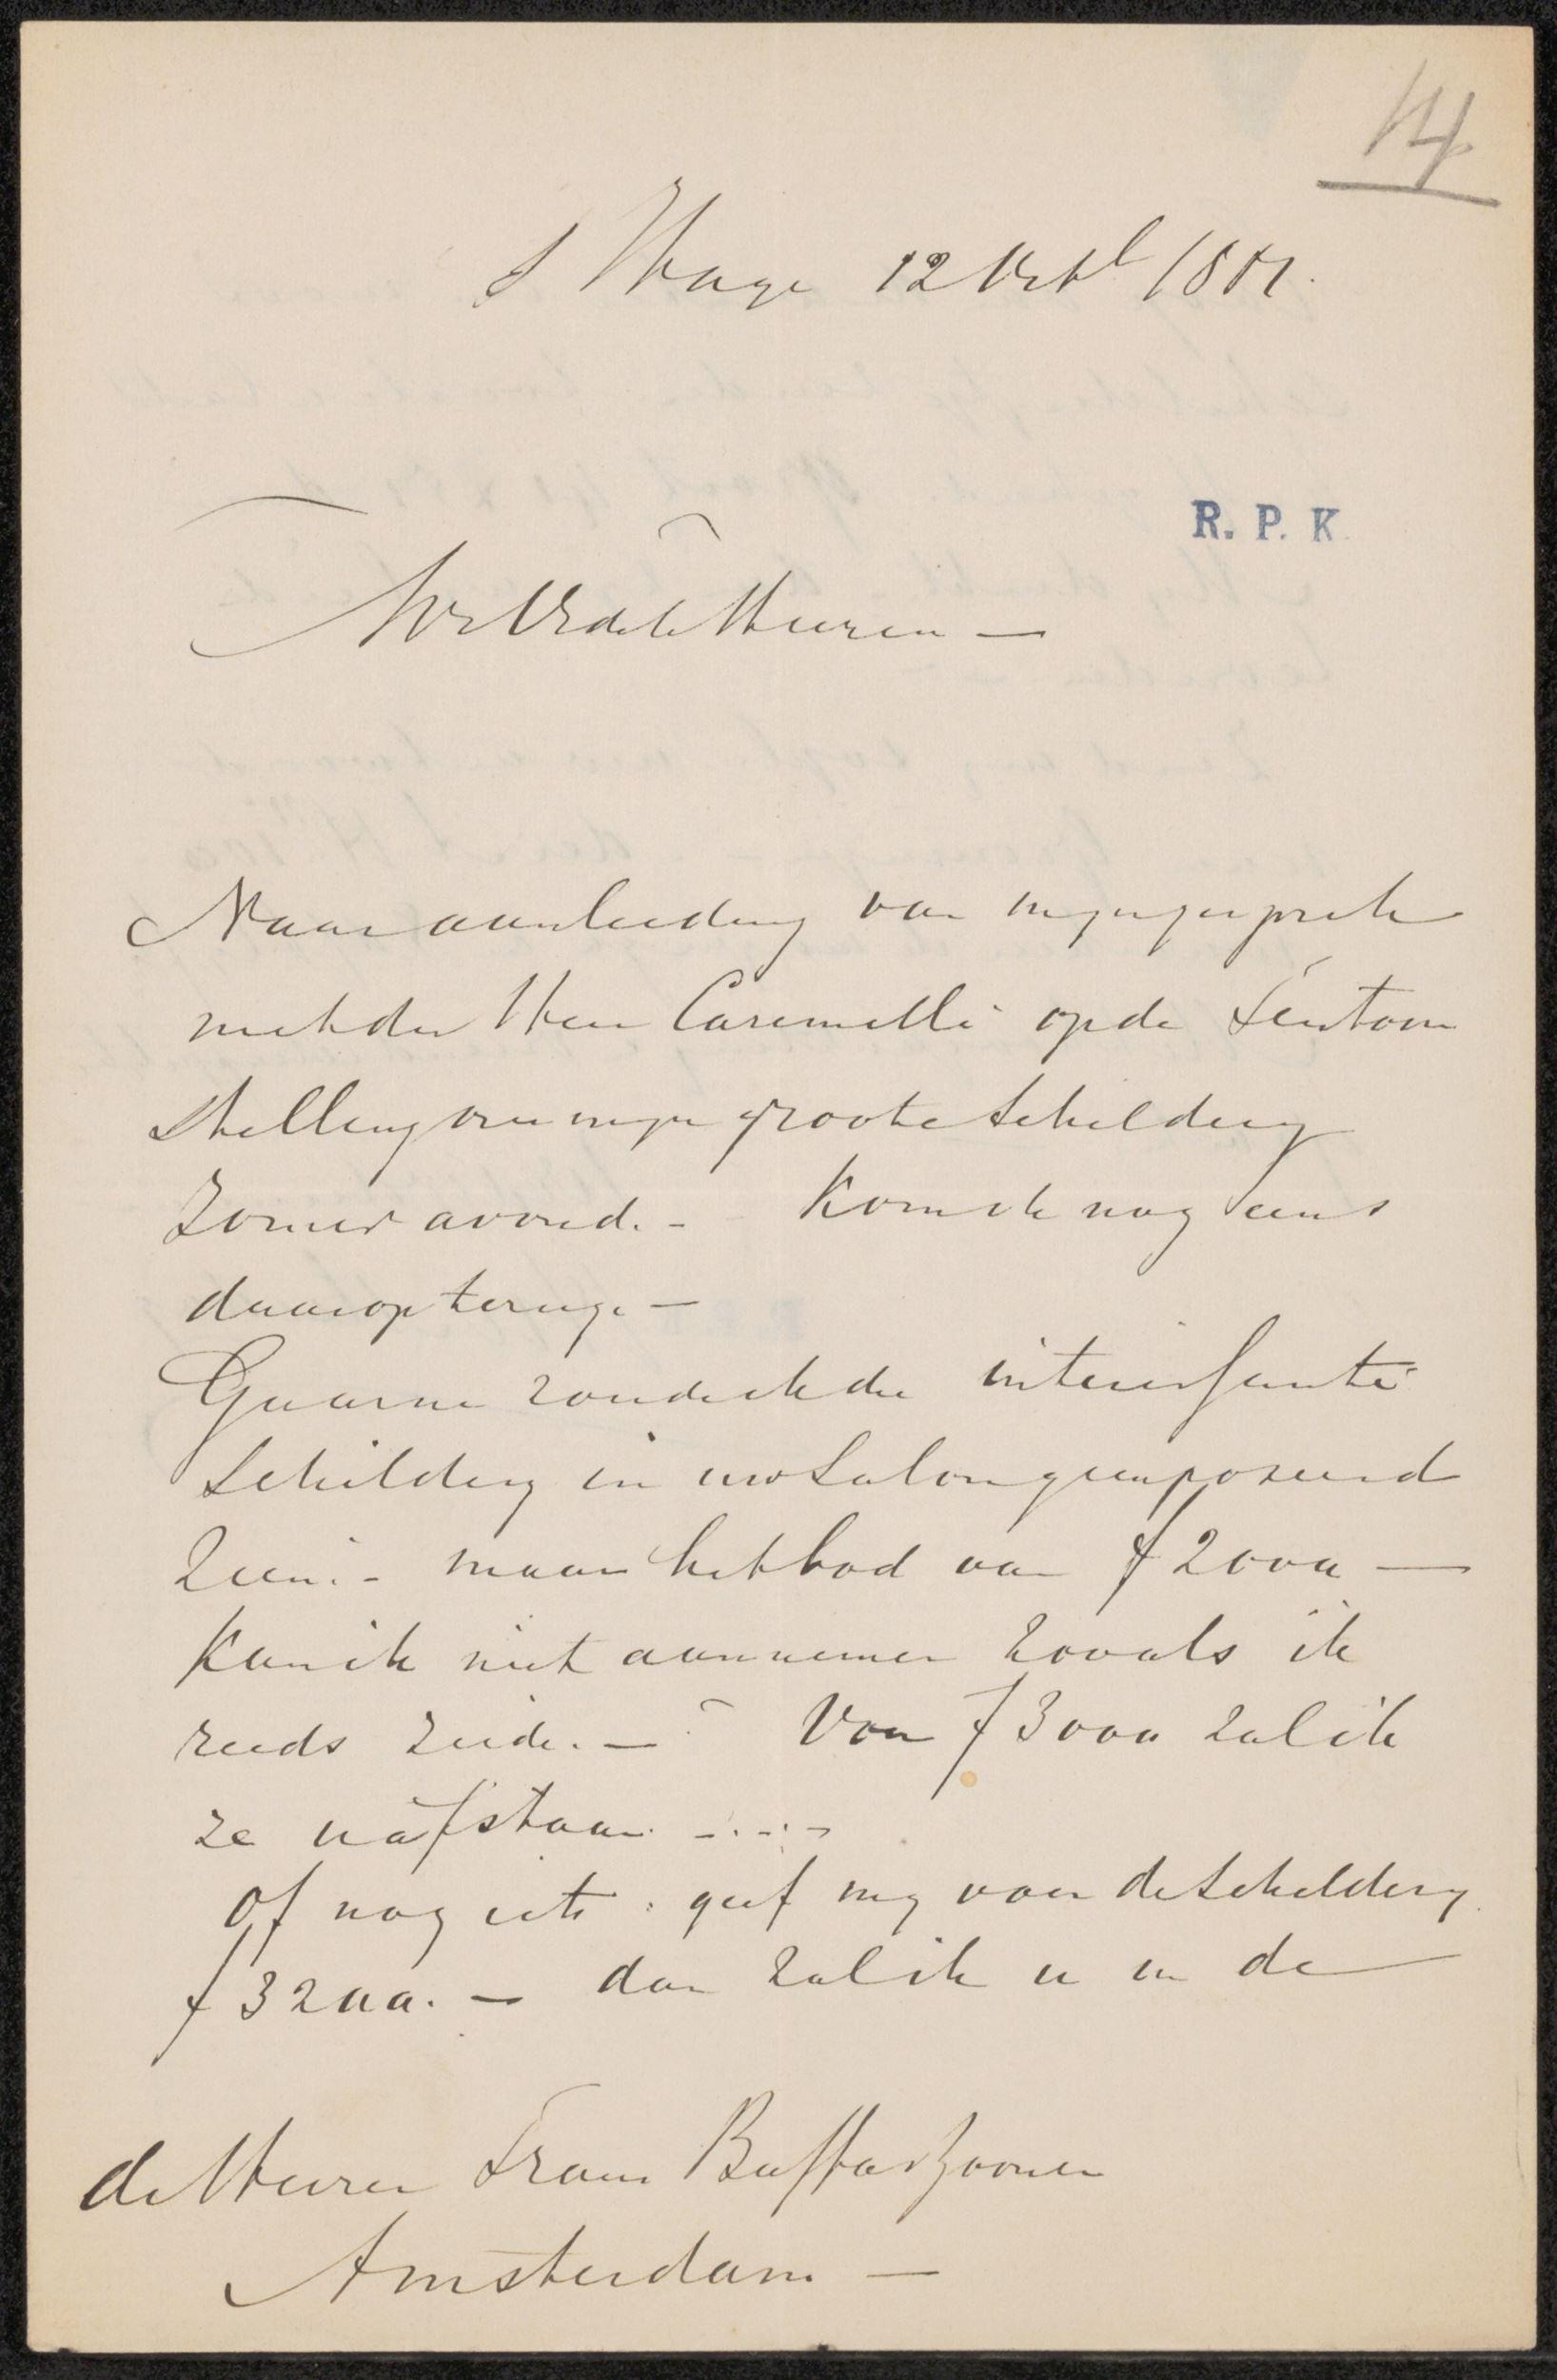 14
s Hage 12 Octb 18
R. P. K.
WelEdele Heeren —
Naar aanleiding van mijn gesprek
met den Heer Caramelli op de tentoon
stelling over mijn groote schildery
Zomer avond. - Kom ik nog eens
daarop terug. —
Gaarne zoude ik die interessante
schildery in uw Salon geexposeerd
zien. - maar het bod van f 2000 —
kan ik niet aannemen zooals ik
reeds zeide. — Voor f 3000 zal ik
ze u afstaan - . - . -
Of nog iets : geef my voor de schildery
f 3200. — dan zal ik u in de
de Heeren Frans Buffa & Zoonen
Amsterdam —